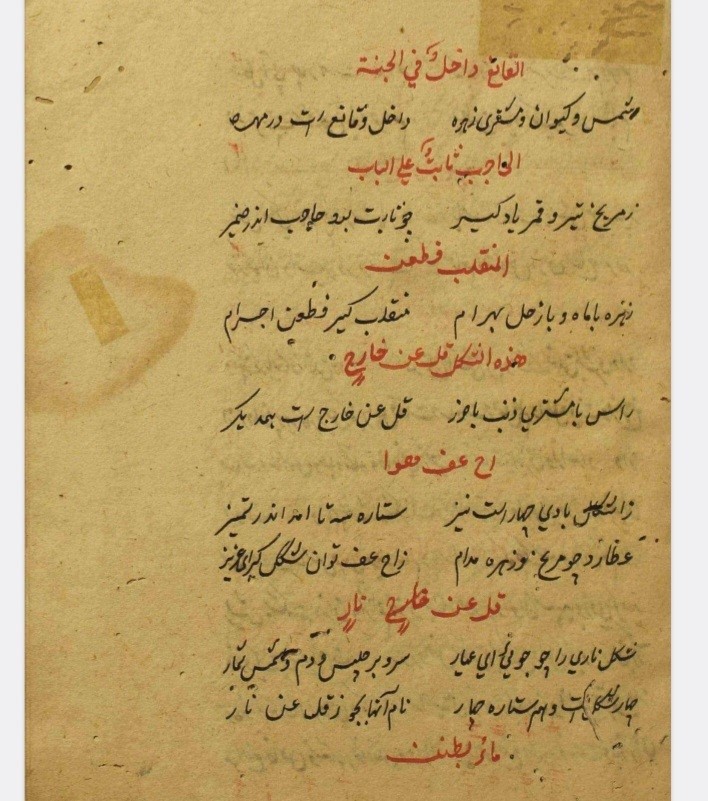 القانع داخل في الجنة
شمس و کیوان و مشتری زهره داخل و قانع است در
الحاجب ثابت علی الباب
ز مریخ تیر و قمر یاد گیر چو ثابت بدو حاجب اندر ضمیر
المنقلب فطعن
زهره باماه و بازحل بهرام منقلب گیر فطعن اجرام
هذه الشکل قل عن خارج
راس بامشتری ذنب باخور قل عن خارج است بهمدیگر
اح عف
زاشکال بادی چهار است نیز ستاره سه تا امد اندر تمیز
عطارد چو مریخ نوزهره مدام زاح عف توان شکل گیرای عزیز
قل عن خارج نار
شکل ناری را چو جوئی ای عیار سرو برجیس و دم و شمس شمار
چار شکل است و هم ستاره چار نام آنها بجو ز قل عن نار